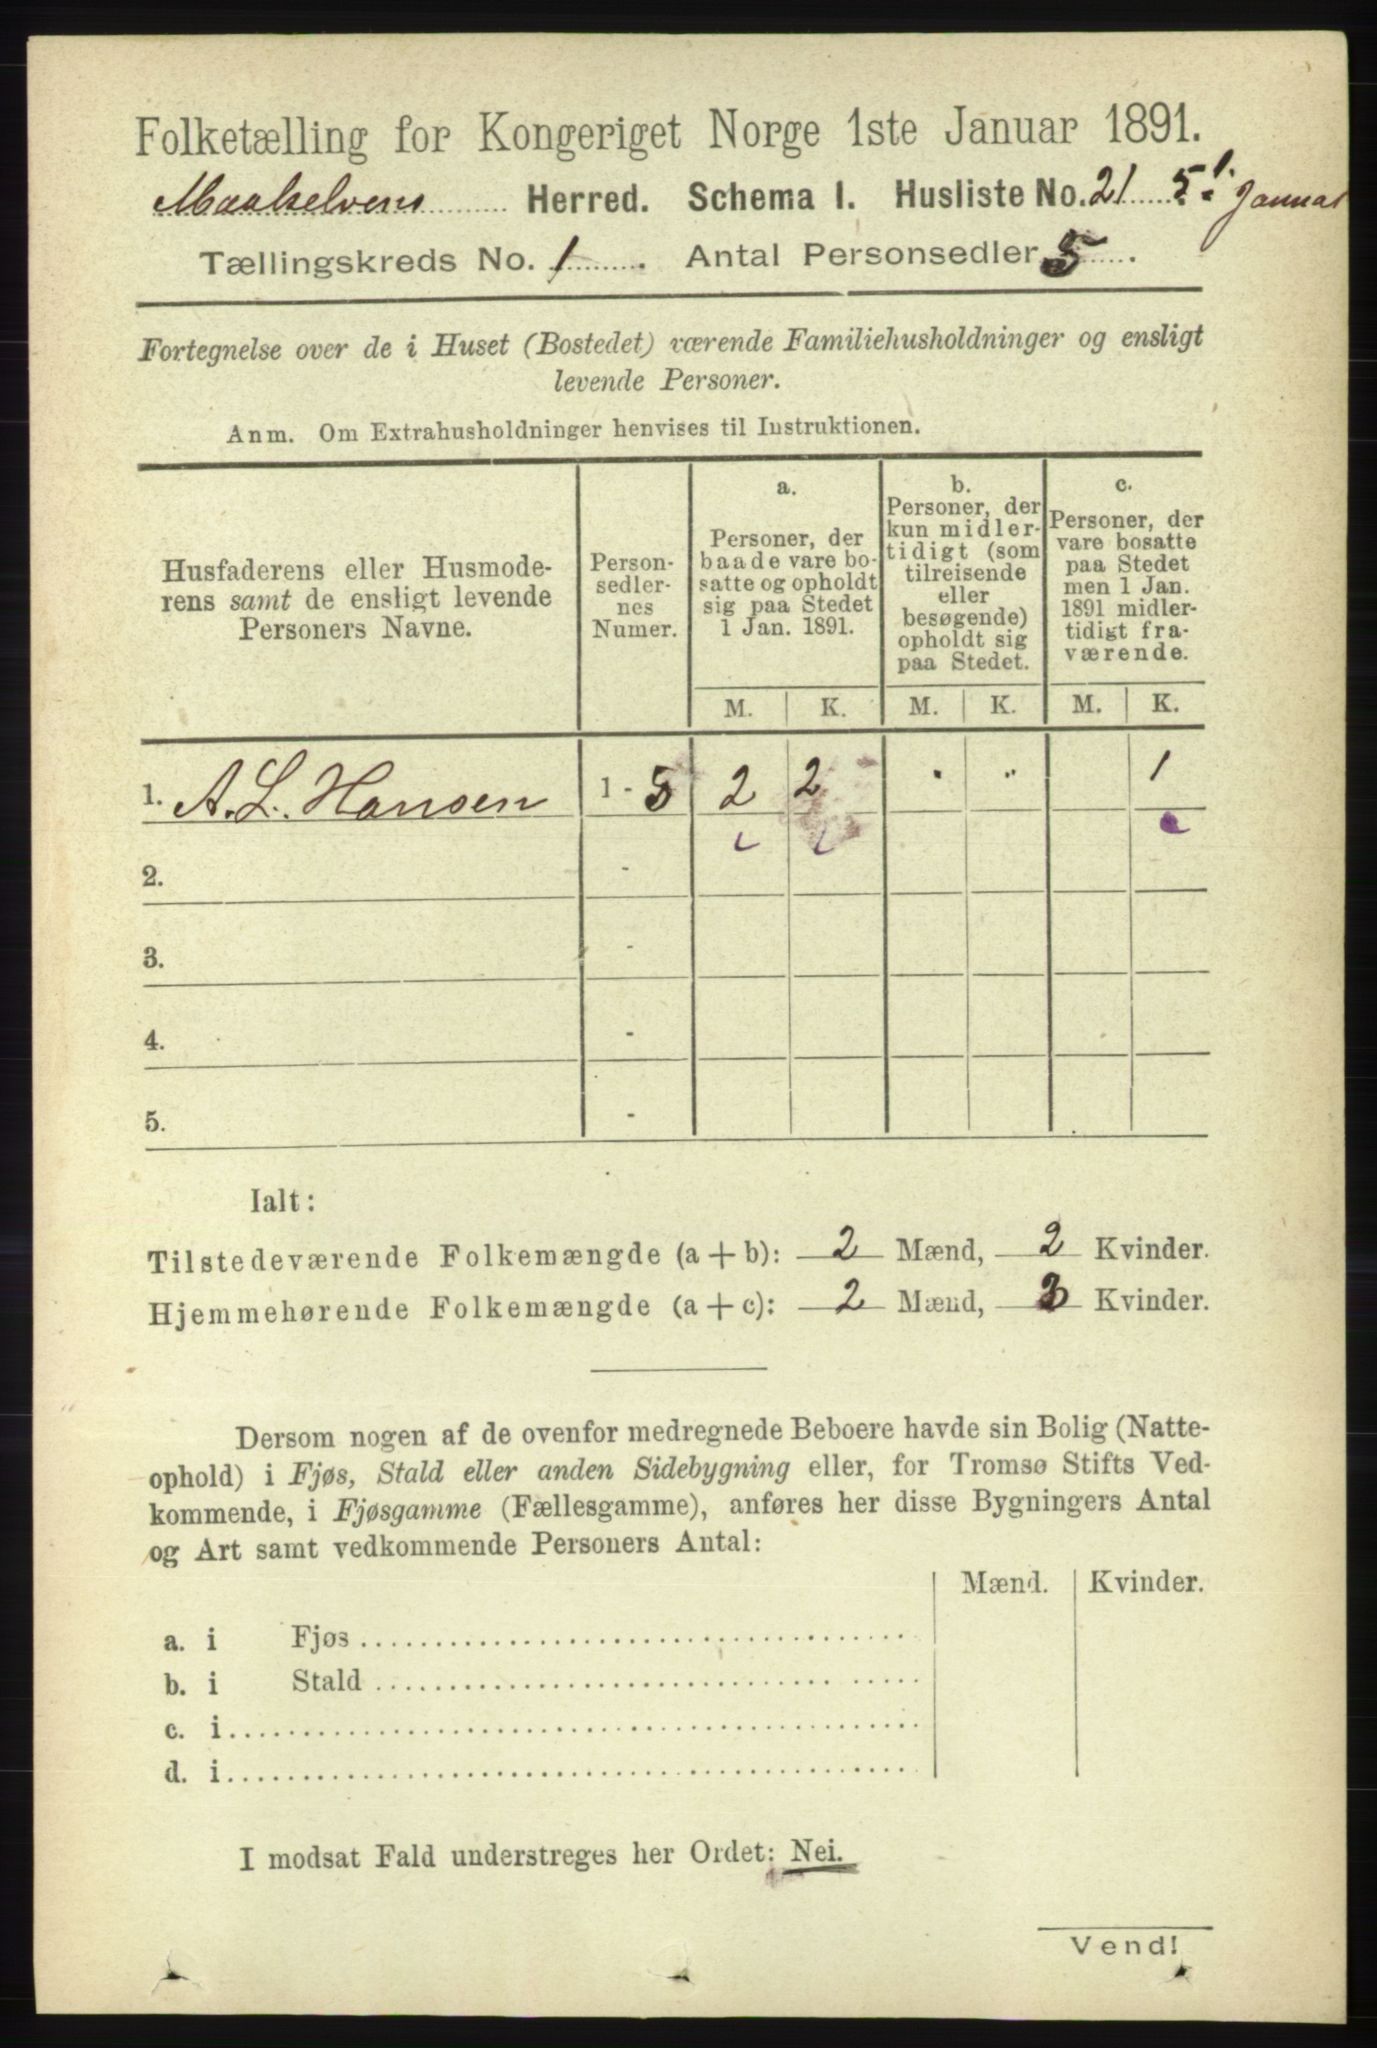 Folketælling for Kongeriget Norge 1ste Januar 1891.
Maalselvens Herred. Schema I. Husliste No. 21 5. 1. Januar
Tællingskreds No. 1. Antal Personsedler 5.
Fortegnelse over de i Huset (Bostedet) værende Familiehusholdninger og ensligt
levende Personer.
Anm. Om Extrahusholdninger henvises til Instruktionen.
Husfaderens eller Husmode-
rens samt de ensligt levende
Personers Navne.
Person-
sedler-
nes
Numer.
a.
Personer, der
baade vare bo-
satte og opholdt
sig paa Stedet
1 Jan. 1891.
b.
Personer, der
kun midler-
tidigt (som
tilreisende
eller
besøgende)
opholdt sig
paa Stedet.
c.
Personer, der
vare bosatte
paa Stedet
men 1 Jan.
1891 midler-
tidigt fra-
værende.
M. K. M. K. M. K.
1. A. L. Hansen 1 - 5 2 2 " " 1
2. -
3. -
4. -
5. -
Ialt:
Tilstedeværende Folkemængde (a + b): 2 Mænd, 2 Kvinder.
Hjemmehørende Folkemængde (a + c): 2 Mænd, 3 Kvinder.
Dersom nogen af de ovenfor medregnede Beboere havde sin Bolig (Natte-
ophold) i Fjøs, Stald eller anden Sidebygning eller, for Tromsø Stifts Ved-
kommende, i Fjøsgamme (Fællesgamme), anføres her disse Bygningers Antal
og Art samt vedkommende Personers Antal:
Mænd. Kvinder.
a. i Fjøs
b. i Stald
c. i
d. i
I modsat Fald understreges her Ordet: Nei.
Vend!